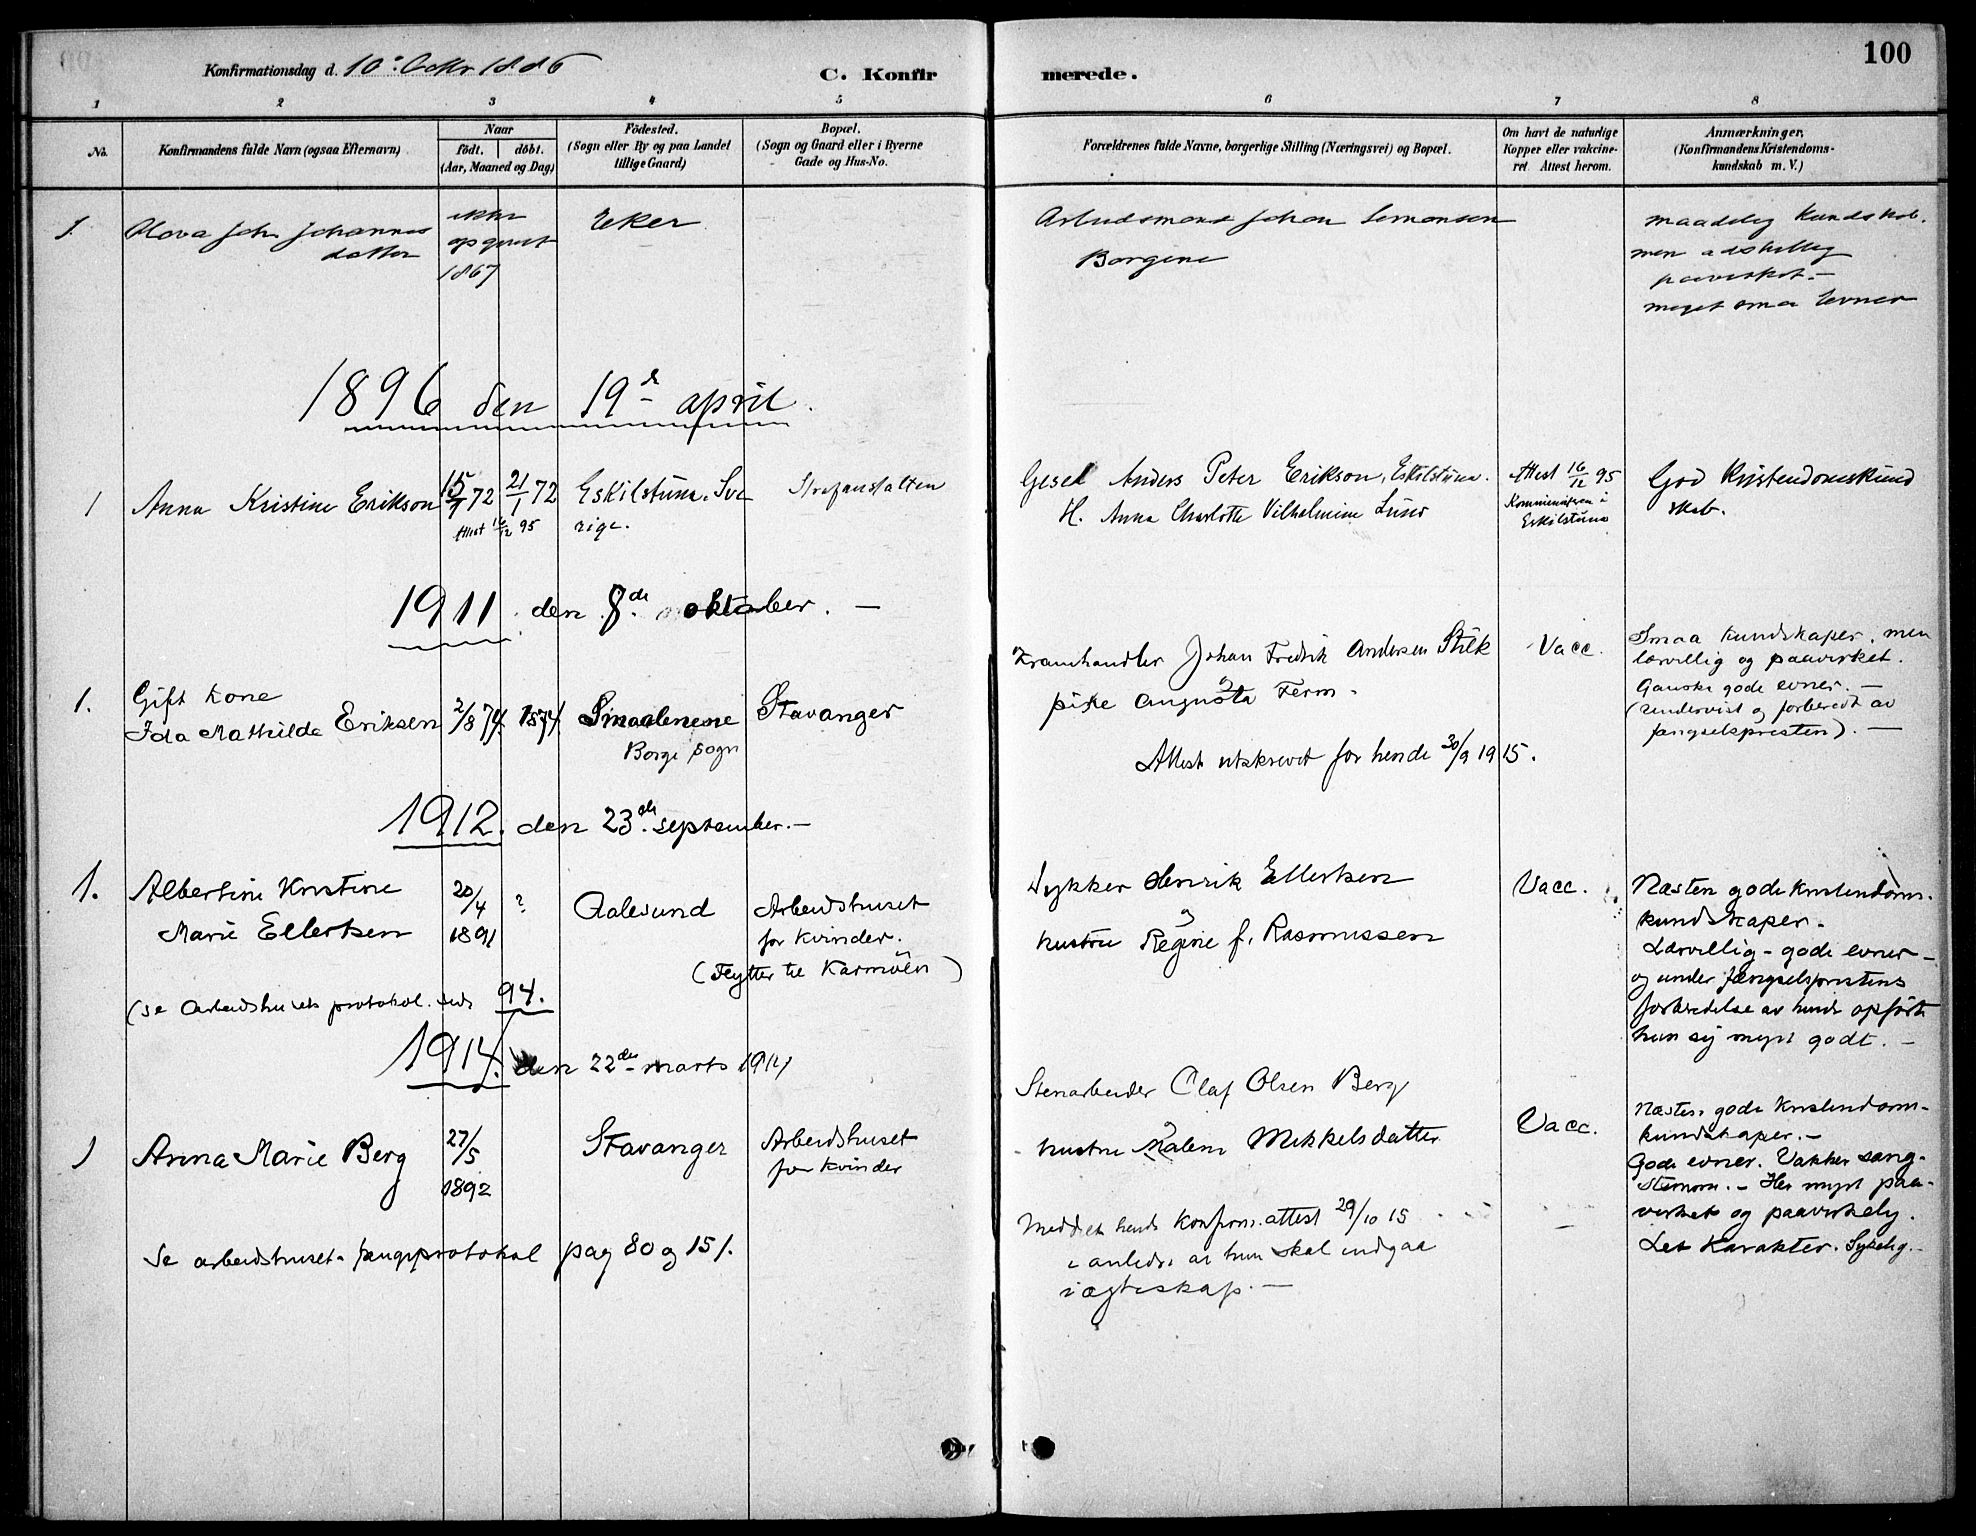 100
Konfirmationsdag d. 10de Octbr 1886
C. Konfirmerede.
1 2 3 4 5 6 7 8
No.
Konfirmandens fulde Navn (ogsaa Efternavn)
Naar
födt. döbt.
(Aar, Maaned og Dag)
Födested.
(Sogn eller By og paa Landet
tillige Gaard)
Bopæl.
(Sogn og Gaard eller i Byerne
Gade og Hus-No.
Forældrenes fulde Navne, borgerlige Stilling (Næringsvei) og Bopæl.
Om havt de naturlige
Kopper eller vakcine-
ret. Attest herom.
Anmærkninger,
(Konfirmandens Kristendoms-
kundskab m. V.)
1. Johannes
datter
ikke
opgivet
1867
Eker
Arbeidsmand Johan Simonsen
Borgene
maadelig Kundskab.
men adskillig
paavirket. —
meget smaa Evner
1896 den 19de april.
1 Anna Kristine Erikson
15/1 72 21/1 72
Attest 16/12 95
Eskilstuna. Sve
rige.
Strafanstalten
Gesel Anders Peter Erikson, Eskilstuna.
H. Anna Charlotte Vilhelmine Lund
Attest 16/12 95
Komministeren i
Eskilstuna
God Kristendomskund
skab.
1911. den 8de oktober. —
1. Gift kone
Ida Mathilde Eriksen
2/8 74. 1874.
Smaalenene
Borge sogn
Stavanger
Kramhandler Johan Fredrik Andersen Stilk
og
pike Augusta Ferm.
Attest utskrevet for hende 30/9 1915.
Vacc.
Smaa kundskaper, men
lærvillig og paavirket.
Ganske gode evner. —
(Undervist og forberedt av
fængselspresten). —
1912. den 23de september. —
1. Albertine Kristine
Marie Ellertsen
20/4
1891
?
Aalesund
Arbeidshuset
for kvinder.
(Flytter til Karmöen)
(se Arbeidshusets protokol. side 94.
Dykker Henrik Ellertsen
og
hustru Regine f. Rasmussen
Vacc.
Næsten gode kristendoms-
kundskaper.
Lærvillig - gode evner -
og under fængselsprestens
forberedelse av hende opförte
hun sig myet godt. —
1914. den 22de marts 1914
1 Anna Marie Berg
27/5
1892
Stavanger
Arbeidshuset
for kvinder
Stenarbeider Olaf Olsen Berg
og
hustru Malene Mikkelsdatter
Vacc.
Næsten gode kristendoms-
kundskaper. —
Gode evner. Vakker sang-
stemme. — Her myet paa-
virket og paavirkelig.
Let karakter. Sykelig. —
Se arbeidshusets fangeprotokol pag 80 og 151.
Meddelt hende konfirm. attest 29/10 15
i anledn. at hun skal indgaa
i ægteskap. —